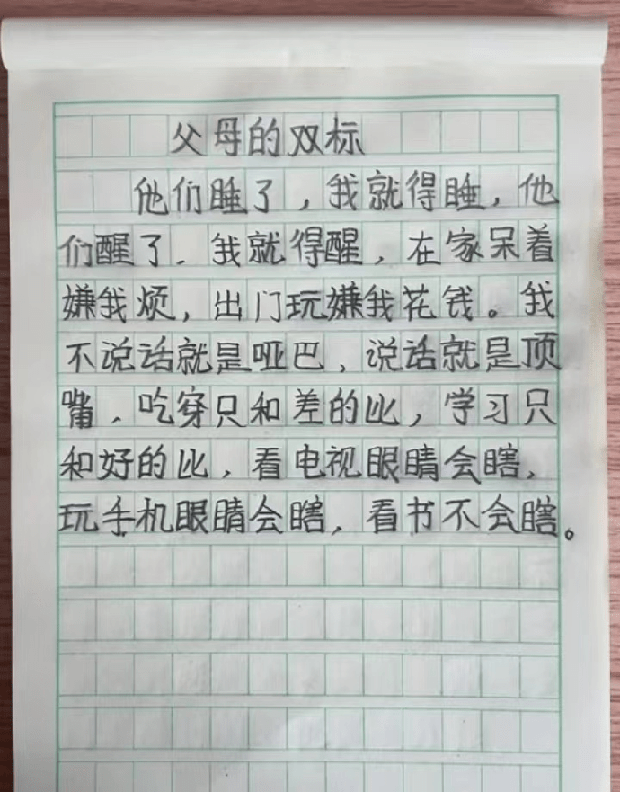 父母的双标
他们睡了，我就得睡，他
们醒了、我就得醒，在家呆着
嫌我烦，出门玩嫌我花钱。我
不说话就是哑巴、说话就是顶
嘴、吃穿只和差的比，学习只
和好的比，看电视眼睛会瞎、
玩手机眼睛会瞎，看书不会瞎。